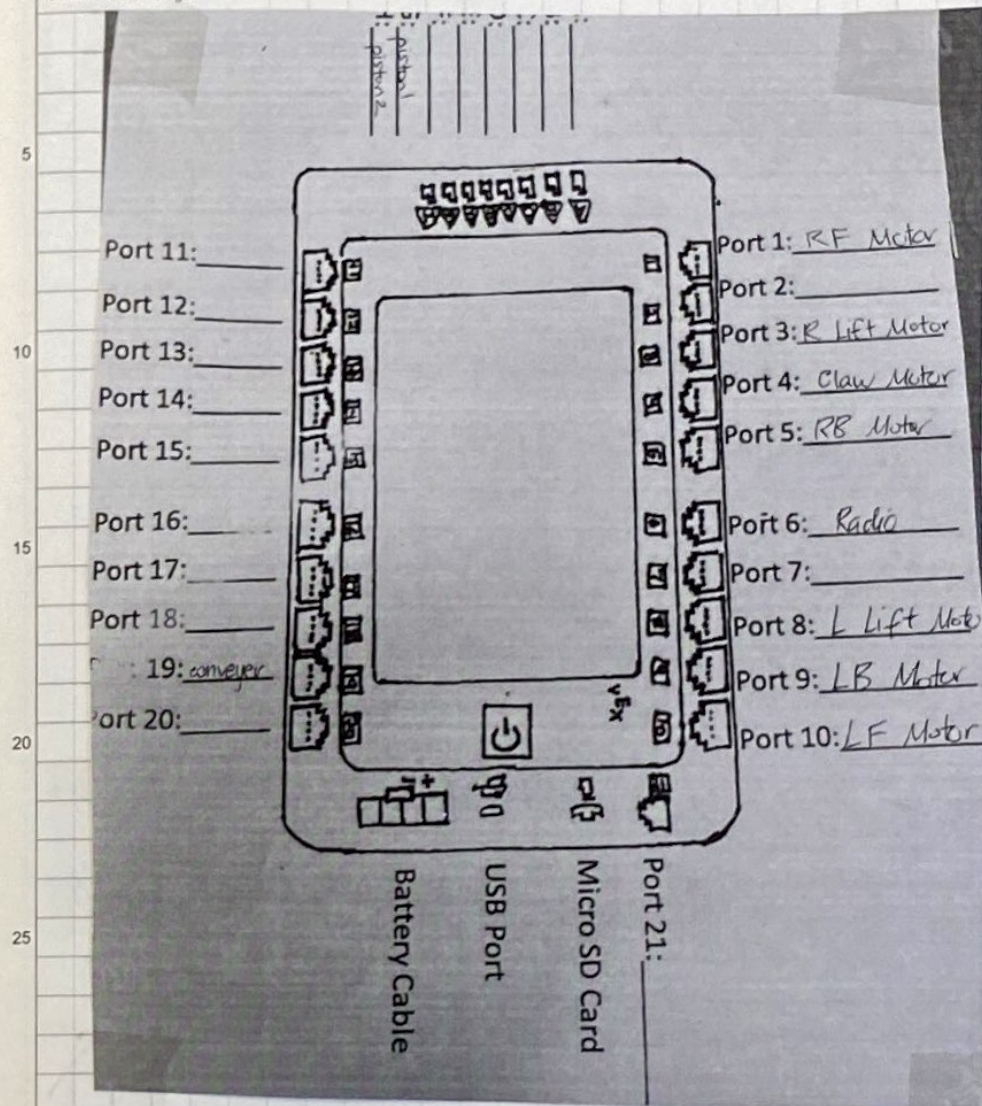 piston1
piston2
5
10
15
20
25
Port 11:
Port 12:
Port 13:
Port 14:
Port 15:
Port 16:
Port 17:
Port 18:
19: conveyer
ort 20:
Port 1: RF Motor
Port 2:
Port 3: R Lift Motor
Port 4: Claw Motor
Port 5: RB Motor
Port 6: Radio
Port 7:
Port 8: L Lift Moto
Port 9: LB Motor
Port 10: LF Motor
VEX
Battery Cable
USB Port
Micro SD Card
Port 21: